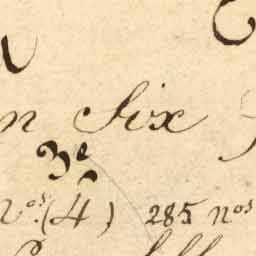 n Six
3e
Nos. (4) 285 nos